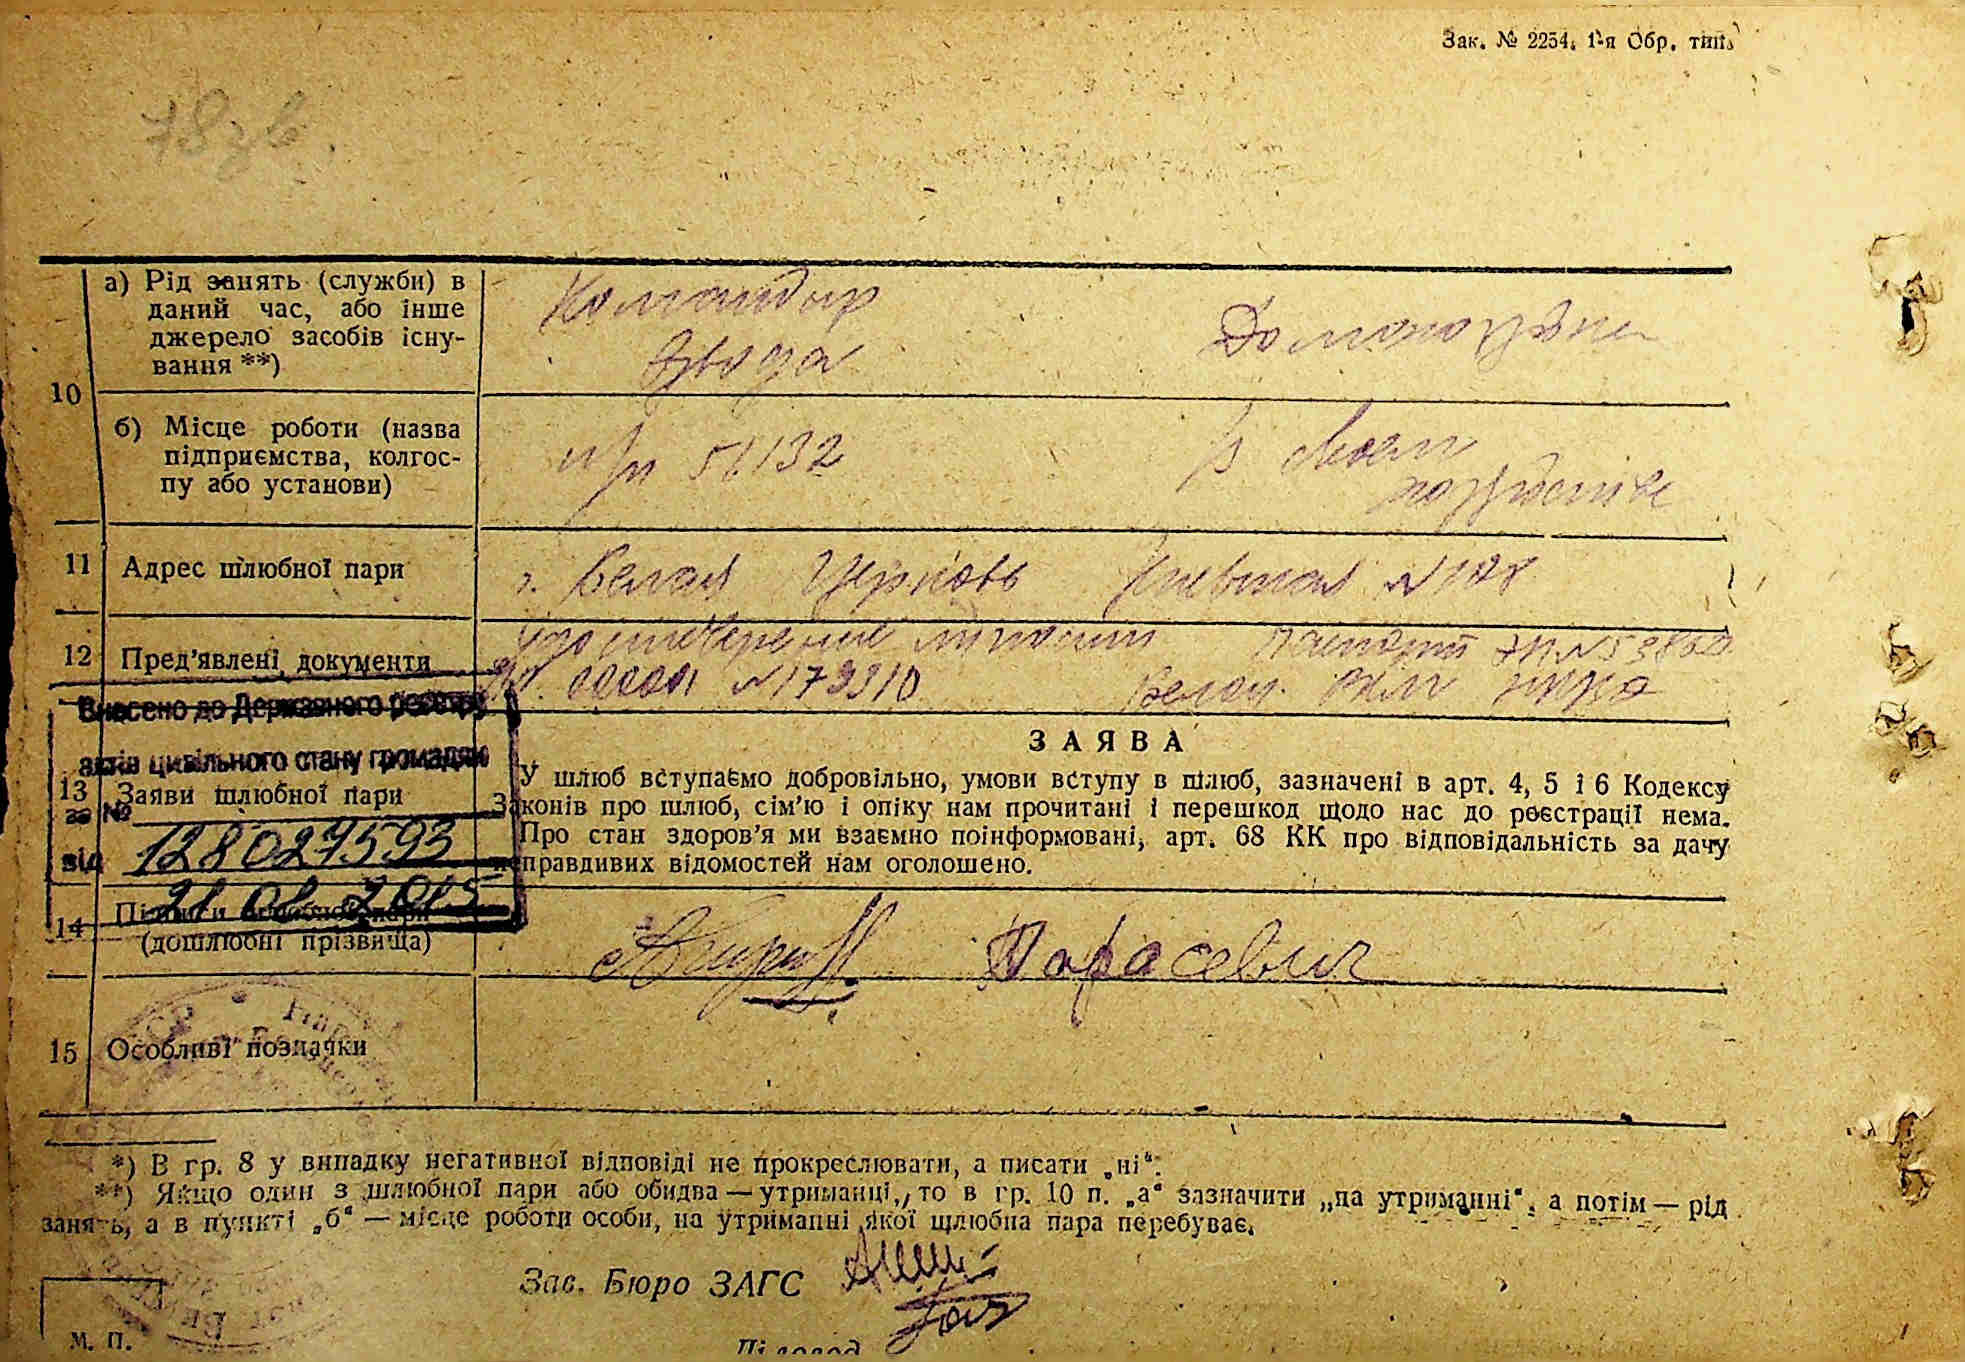 Зак. № 2254. 1-я Обр. тип.
78 зв.
10
а) Рід занять (служби) в
даний час, або інше
джерело засобів існу-
вання **)
Командир
взвода
Домохозяйка
б) Місце роботи (назва
підприємства, колгос-
пу або установи)
п/п 51132
В своем
хозяйстве
11
Адрес шлюбної пари
г. Белая Церковь №108
12
Пред'явлені документи
удостоверение личности
№179910
Паспорт
Белоц.
Внесено до Державного реєстру
актів цивільного стану громадян
за №
128027593
від
21 08 2015
13
Заяви шлюбної пари
ЗАЯВА
У шлюб вступаємо добровільно, умови вступу в шлюб, зазначені в арт. 4, 5 і 6 Кодексу
Законів про шлюб, сім'ю і опіку нам прочитані і перешкод щодо нас до реєстрації нема.
Про стан здоров'я ми взаємно поінформовані, арт. 68 КК про відповідальність за дачу
неправдивих відомостей нам оголошено.
14
Підписи шлюбної пари
(дошлюбні прізвища)
Тарасевич
15
Особливі позначки
*) В гр. 8 у випадку негативної відповіді не прокреслювати, а писати „ні“.
**) Якщо один з шлюбної пари або обидва — утриманці, то в гр. 10 п. „а“ зазначити „на утриманні“, а потім — рід
занять, а в пункті „б“ — місце роботи особи, на утриманні якої шлюбна пара перебуває.
Зав. Бюро ЗАГС
Діловод
М. П.